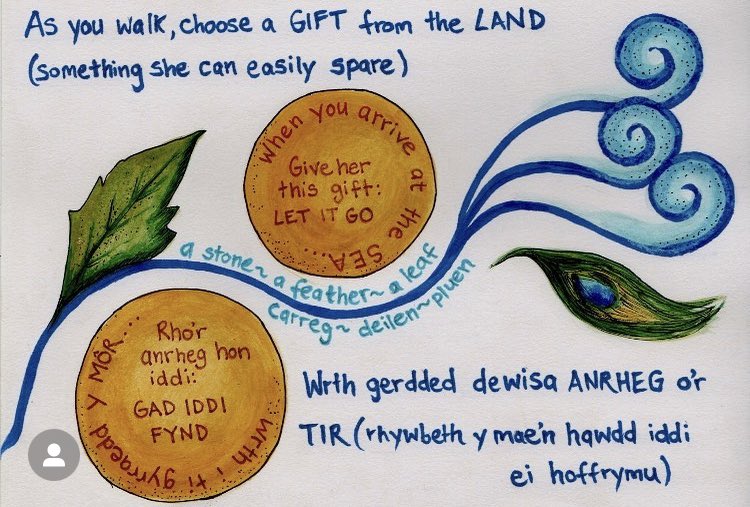 As you walk, choose a GIFT from the LAND
(something she can easily spare)
When you arrive at the SEA...
Give her
this gift:
LET IT GO
a stone~ a feather~ a leaf
carreg~ deilen~ pluen
Wrth i ti gyrraedd y MÔR....
Rho'r
anrheg hon
iddi:
GAD IDDI
FYND
Wrth gerdded dewisa ANRHEG o'r
TIR (rhywbeth y mae'n hawdd iddi
ei hoffrymu)